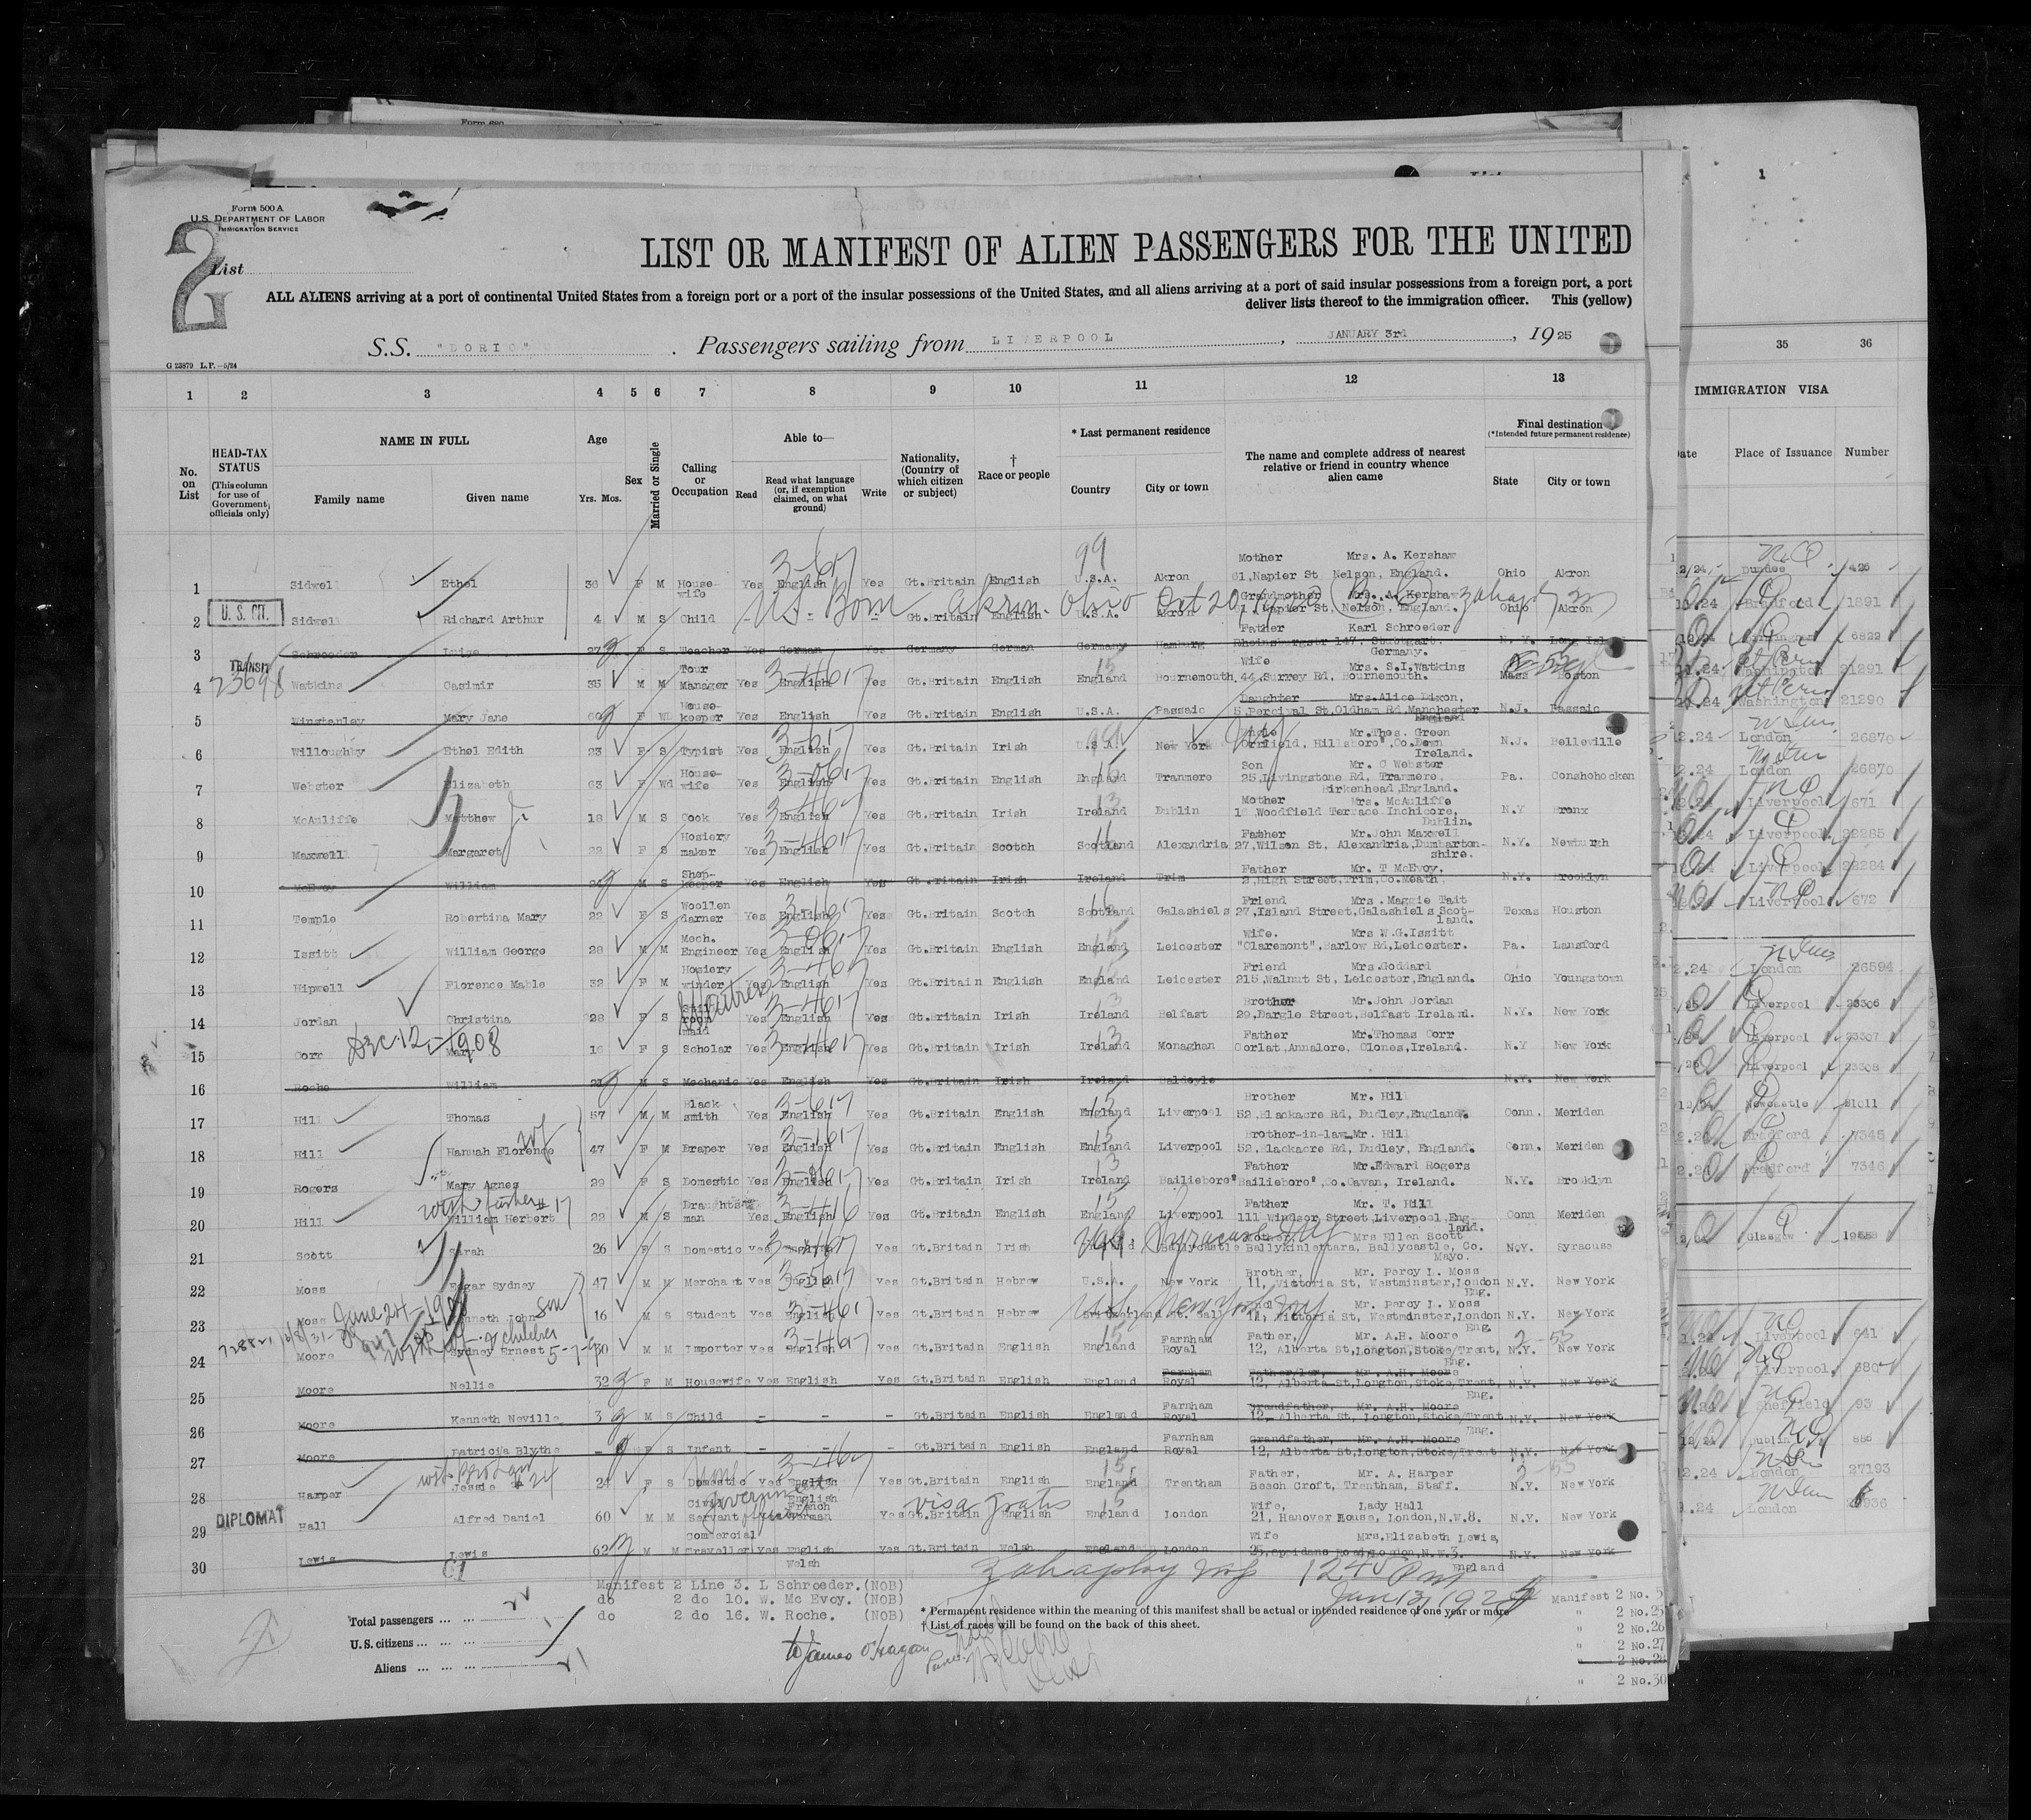 Form 500 A
U.S. DEPARTMENT OF LABOR
IMMIGRATION SERVICE
2
List
LIST OR MANIFEST OF ALIEN PASSENGERS FOR THE UNITED
ALL ALIENS arriving at a port of continental United States from a foreign port or a port of the insular possessions of the United States, and all aliens arriving at a port of said insular possessions from a foreign port, a port
deliver lists thereof to the immigration officer. This (yellow)
S.S. "DORIC" . Passengers sailing from LIVERPOOL , JANUARY 3rd , 1925
G 23879 L.P.—5/24
1 2 3 4 5 6 7 8 9 10 11 12 13
No. on List
HEAD-TAX STATUS (This column for use of Government officials only)
NAME IN FULL
Family name Given name
Age Yrs. Mos.
Sex
Married or Single
Calling or Occupation
Able to—
Read Read what language (or, if exemption claimed, on what ground) Write
Nationality, (Country of which citizen or subject)
† Race or people
* Last permanent residence
Country City or town
The name and complete address of nearest relative or friend in country whence alien came
Final destination (*Intended future permanent residence)
State City or town
35 36
IMMIGRATION VISA
Place of Issuance Number
Mother Mrs. A. Kershaw
1 Sidwell Ethel 36 F M House-wife Yes English Yes Gt.Britain English U.S.A. Akron 61,Napier St Nelson, England. Ohio Akron
U.S. Born Akron Ohio Oct 20
Grandmother Mrs. A Kershaw
2 U.S. CIT. Sidwell Richard Arthur 4 M S Child - - - Gt.Britain English U.S.A. Akron 61, Napier St. Nelson, England. Ohio Akron
Father Karl Schroeder
3 Schroeder Luise 27 F S Teacher Yes German Yes Germany German Germany Hamburg Rheinsbergstr 147, Stuttgart. Germany. N.Y. Long Island
TRANSIT
23698
Wife Mrs. S.I,Watkins
4 Watkins Casimir 35 M M Tour Manager Yes English Yes Gt.Britain English England Bournemouth 44,Surrey Rd, Bournemouth. Mass Boston
Daughter Mrs.Alice Dixon,
5 Winstanley Mary Jane 60 F Wd House-keeper Yes English Yes Gt.Britain English U.S.A. Passaic 5,Percival St,Oldham Rd,Manchester England N.J. Passaic
Mr.Thos. Green
6 Willoughby Ethel Edith 23 F S Typist Yes English Yes Gt.Britain Irish U.S.A. New York Ornfield, Hillsboro',Co.Down Ireland. N.J. Belleville
Son Mr. C Webster
7 Webster Elizabeth 63 F Wd House-wife Yes English Yes Gt.Britain English England Tranmere 25,Livingstone Rd, Tranmere, Birkenhead,England. Pa. Conshohocken
Mother Mrs. McAuliffe
8 McAuliffe Matthew 18 M S Cook Yes English Yes Gt.Britain Irish Ireland Dublin Woodfield Terrace Inchicore, Dublin. N.Y Bronx
Father Mr.John Maxwell
9 Maxwell Margaret 22 F S Hosiery maker Yes English Yes Gt.Britain Scotch Scotland Alexandria 27,Wilson St, Alexandria,Dumbarton-shire. N.Y. Newburgh
Father Mr. T McEvoy.
10 McEvoy William M S Shop-keeper Yes English Yes Gt.Britain Irish Ireland Trim 2,High Street,Trim,Co.Meath, N.Y. Brooklyn
Friend Mrs.Maggie Tait
11 Temple Robertina Mary 22 F S Woollen darner Yes English Yes Gt.Britain Scotch Scotland Galashiels 27,Island Street.Galashiels Scot-land. Texas Houston
Wife. Mrs W.G.Issitt
12 Issitt William George 28 M M Mech. Engineer Yes English Yes Gt.Britain English England Leicester "Claremont",Barlow Rd,Leicester. Pa. Lansford
Friend Mrs.Goddard
13 Hipwell Florence Mable 32 F M Hosiery winder Yes English Yes Gt.Britain English England Leicester 215,Walnut St, Leicester,England. Ohio Youngstown
Waitress
Brother Mr.John Jordan
14 Jordan Christina 28 F S Still room maid Yes English Yes Gt.Britain Irish Ireland Belfast 29,Dargle Street,Belfast Ireland. N.Y. New York
Dec-12-1908
Father Mr.Thomas Corr
15 Corr Mary 16 F S Scholar Yes English Yes Gt.Britain Irish Ireland Monaghan Corlat,Annalore, Clones,Ireland. N.Y New York
16 Roche William 21 M S Mechanic Yes English Yes Gt.Britain Irish Ireland Baldoyle N.Y. New York
Brother Mr. Hill
17 Hill Thomas 57 M M Black smith Yes English Yes Gt.Britain English England Liverpool 52,Blackacre Rd, Dudley,England. Conn. Meriden
Brother-in-law,Mr. Hill
18 Hill Hannah Florence wf 47 F M Draper Yes English Yes Gt.Britain English England Liverpool 52,Blackacre Rd, Dudley, England. Conn. Meriden
Father Mr.Edward Rogers
19 Rogers Mary Agnes 29 F S Domestic Yes English Yes Gt.Britain Irish Ireland Bailieboro' "Bailieboro", Co.Cavan, Ireland. N.Y. Brooklyn
with father #17
Father Mr. T. Hill
20 Hill William Herbert 22 M S Draughts-man Yes English Yes Gt.Britain English England Liverpool 111 Windsor Street,Liverpool,Eng-land. Conn Meriden
Syracuse NY
Mrs Ellen Scott
21 Scott Sarah 26 F S Domestic Yes English Yes Gt.Britain Irish Ballycastle Ballykinlettara, Ballycastle, Co. Mayo. N.Y. Syracuse
Brother, Mr. Percy I. Moss
22 Moss Edgar Sydney 47 M M Merchant Yes English Yes Gt.Britain Hebrew U.S.A. New York 11, Victoria St, Westminster,London Eng. N.Y. New York
June 24-1908 son
Mr. Percy I. Moss
23 Moss Kenneth John 16 M S Student Yes English Yes Gt.Britain Hebrew 11, Victoria St, Westminster,London Eng. N.Y. New York
Father, Mr. A.H. Moore
24 Moore Sydney Ernest 30 M M Importer Yes English Yes Gt.Britain English England Farnham Royal 12, Alberta St,Longton,Stoke/Trent, Eng. N.Y. New York
Mr. A.H. Moore
25 Moore Nellie 32 F M Housewife Yes English Yes Gt.Britain English England Farnham Royal 12, Alberta St,Longton,Stoke/Trent, Eng. N.Y. New York
Grandfather, Mr. A.H. Moore
26 Moore Kenneth Neville 3 M S Child - - - Gt.Britain English England Farnham Royal 12, Alberta St, Longton,Stoke/Trent Eng. N.Y. New York
Grandfather, Mr. A.H. Moore
27 Moore Patricia Blythe - F S Infant - - - Gt.Britain English England Farnham Royal 12, Alberta St,Longton,Stoke/Trent N.Y. New York
Father, Mr. A. Harper
28 Harper Jessie #24 24 F S Domestic Yes English Yes Gt.Britain English England Trentham Beech Croft, Trentham, Staff. N.Y. New York
visa gratis
Wife, Lady Hall
29 DIPLOMAT Hall Alfred Daniel 60 M M Civil servant English French German Yes Gt.Britain English England London 21, Hanover House, London,N.W.8. N.Y. New York
Wife Mrs.Elizabeth Lewis,
30 Lewis Lewis 62 M M Commercial Traveller Yes English Welsh Yes Gt.Britain Welsh England London 25, Road,London, N.W.3. England N.Y. New York
Manifest 2 Line 3. L Schroeder.(NOB)
do 2 do 10. W. Mc Evoy. (NOB)
do 2 do 16. W. Roche. (NOB)
Total passengers
U.S. citizens
Aliens
* Permanent residence within the meaning of this manifest shall be actual or intended residence of one year or more
† List of races will be found on the back of this sheet.
James O'Hagan
Manifest 2 No. 5
" 2 No.25
" 2 No.26
" 2 No.27
" 2 No.28
" 2 No.30
Dundee 426
Bradford 1891
6822
Washington 21291
Washington 21290
London 26870
London 26870
Liverpool 671
Liverpool 22285
Liverpool 22284
Liverpool 672
London 26594
Liverpool 23306
Liverpool 23307
Liverpool 23308
Newcastle 81011
Bradford 7345
Bradford 7346
Glasgow
Liverpool 641
Liverpool 680
Sheffield 93
Dublin
London 27193
London